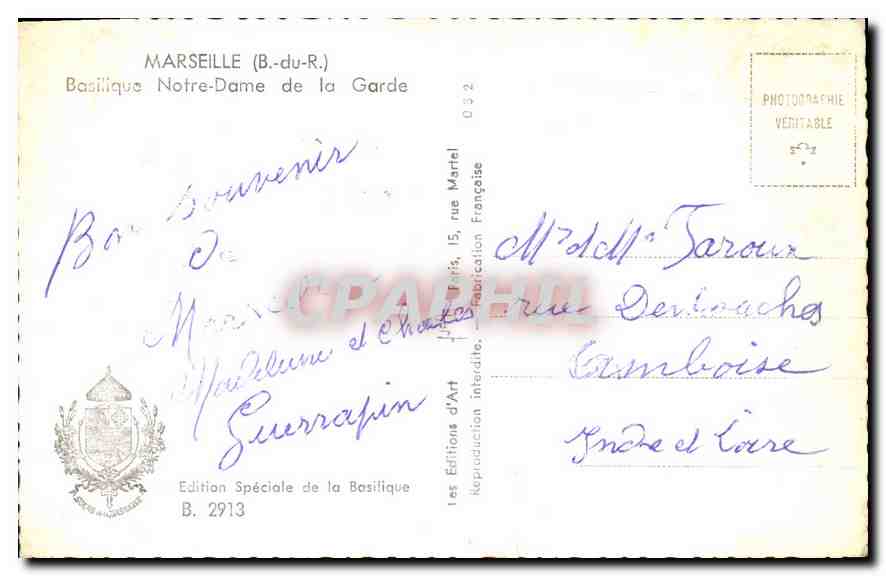 MARSEILLE (B.-du-R.)
Basilique Notre-Dame de la Garde
Bon souvenir
de
Madeleine et Charles
Guerrapin
Edition Spéciale de la Basilique
B. 2913
Les Editions d'Art Paris, 15, rue Martel 032
Reproduction interdite. Fabrication Française
CPAPHIL
PHOTOGRAPHIE
VÉRITABLE
Mr et Me Taroux
rue
amboise
Indre et Loire